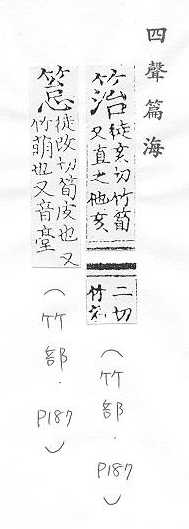 四聲篇海
䈚徒亥切竹筍
又直之他亥
二切
竹
（竹部．P187）
徒改切筍皮也又
竹萌也又音臺
（竹部．P187）